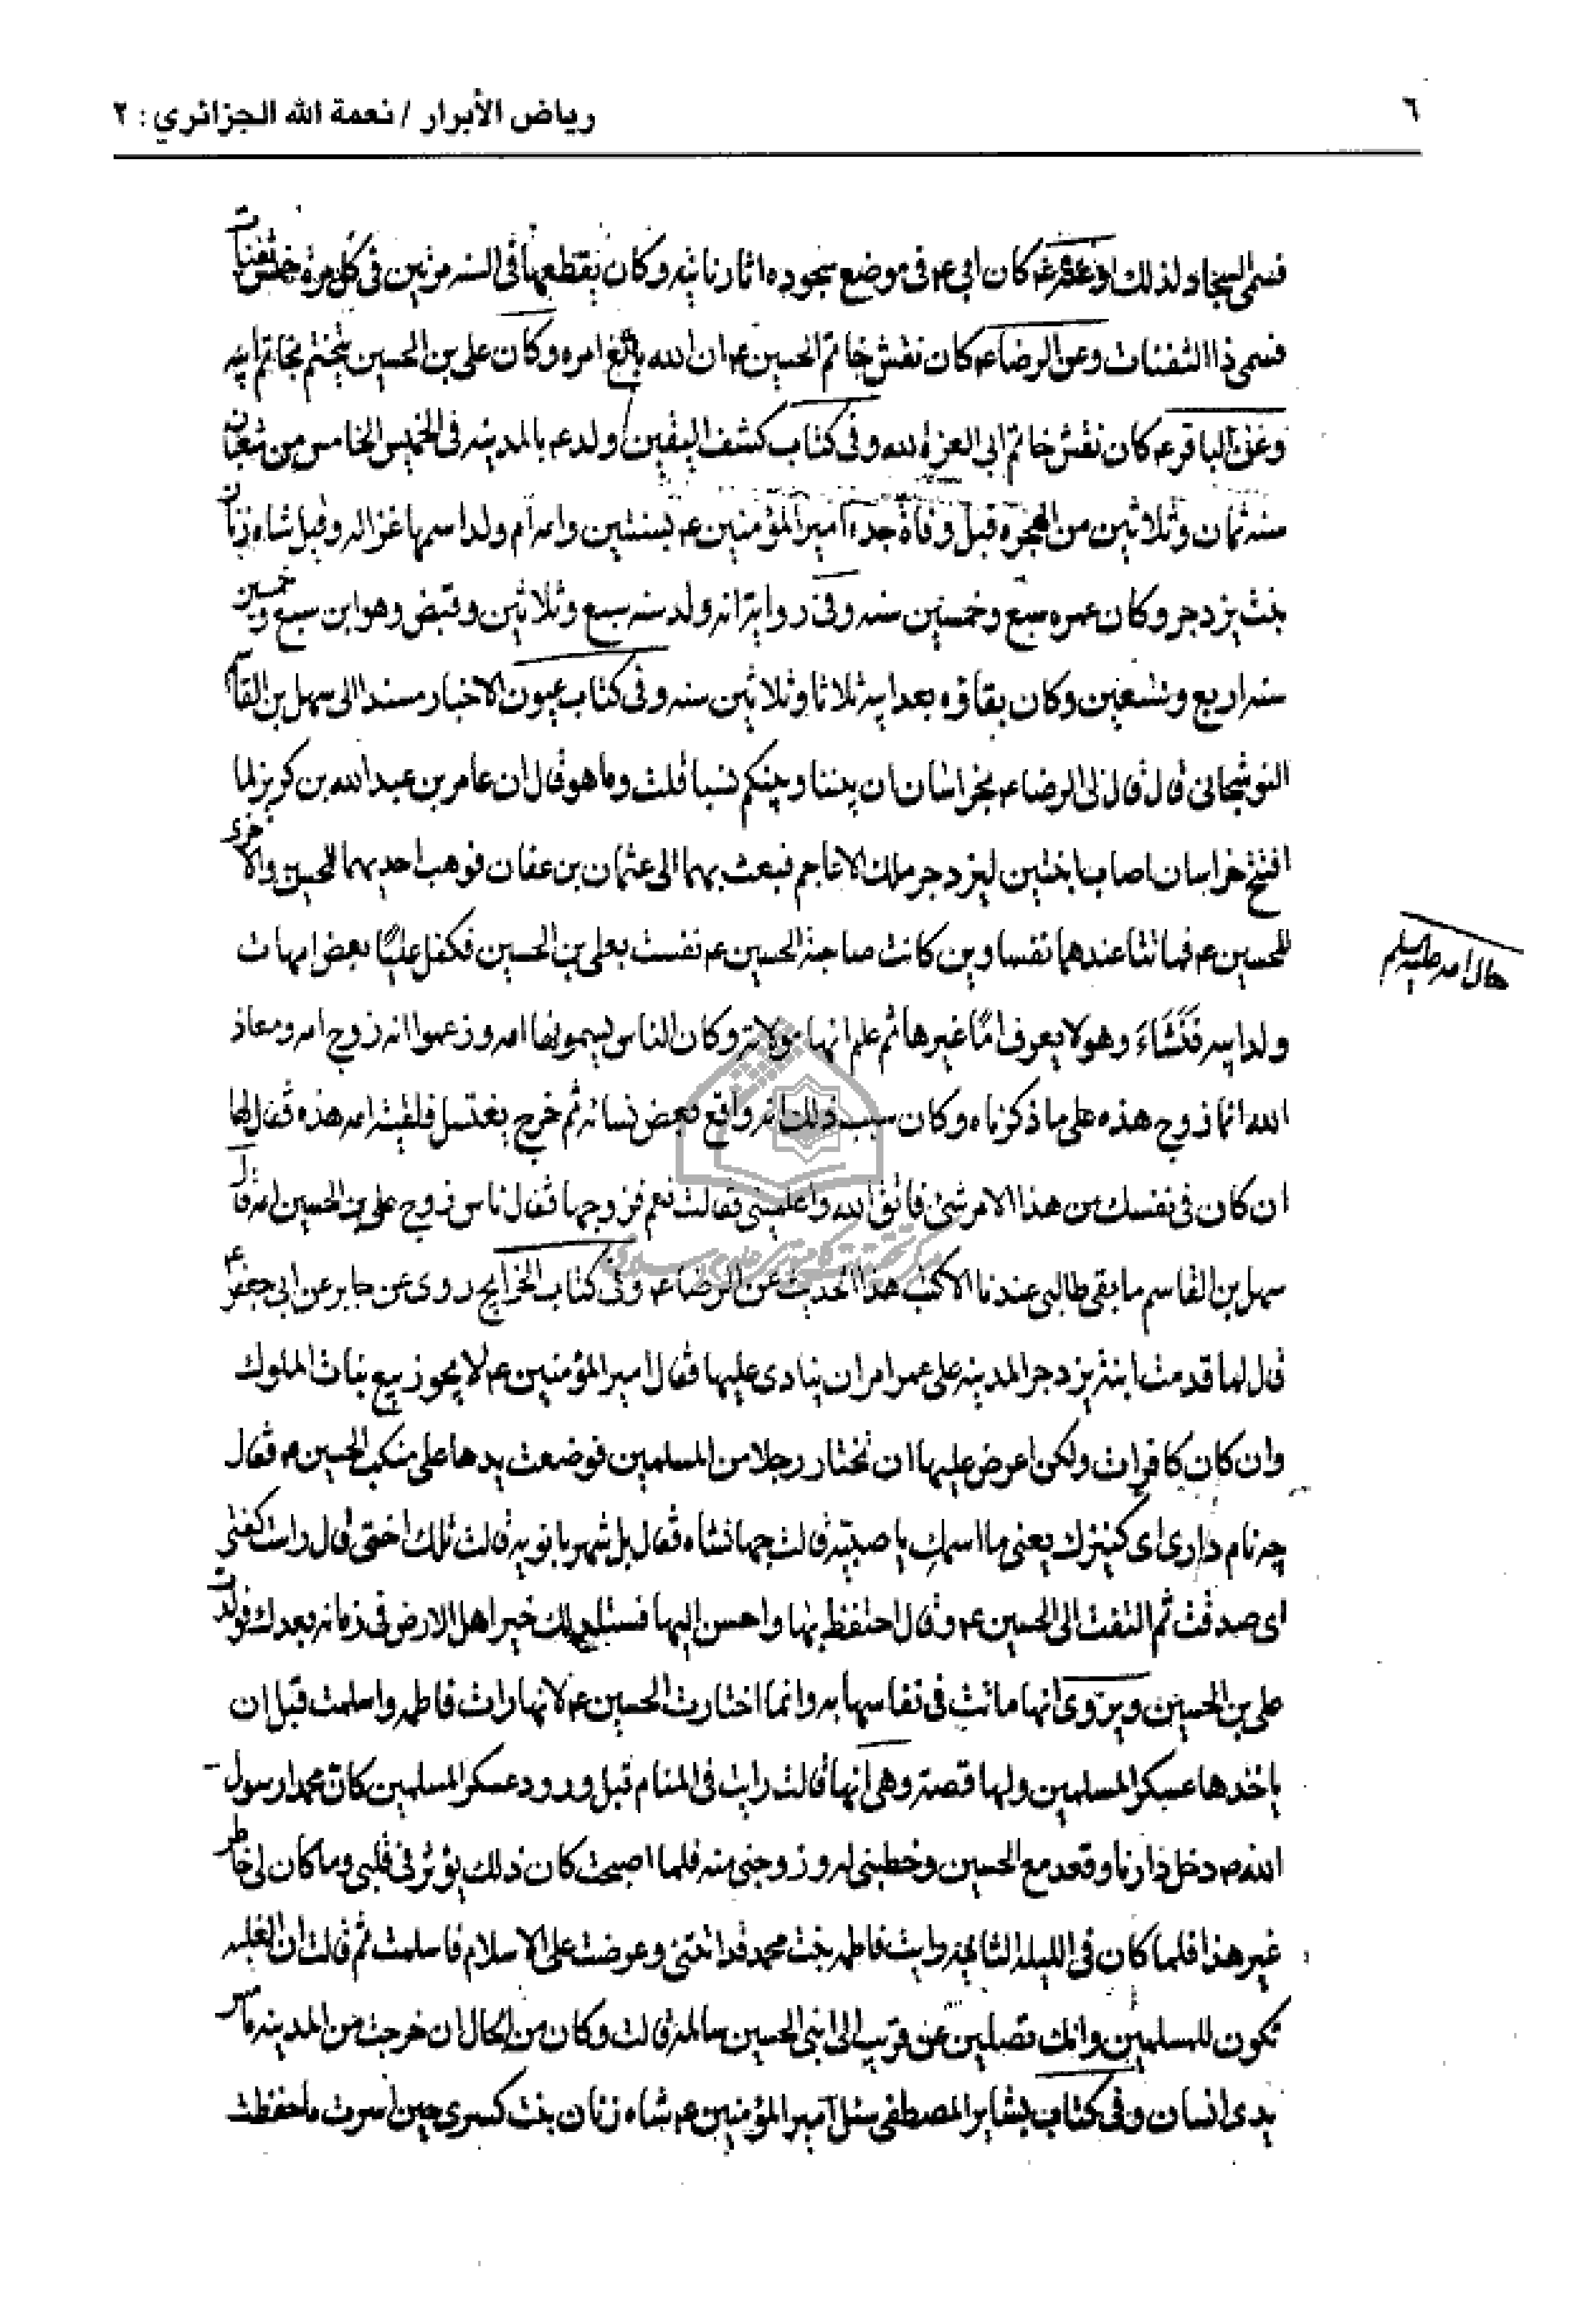 ٦
رياض الأبرار / نعمة الله الجزائري : ٢
فسمى السجاد لذلك وعنه ع كان ابي ع فى موضع سجوده اثار ناتيه وكان يقطعها فى السنه مرتين فى كل مره خمس ثفنات
فسمى ذا الثفنات وعن الرضا ع كان نقش خاتم الحسين ع ان الله بالغ امره وكان على بن الحسين يتختم بخاتم ابيه
وعن الباقر ع كان نقش خاتم ابى العزه لله وفى كتاب كشف اليقين ولد ع بالمدينه فى الخميس الخامس من شعبان
سنه ثمان وثلاثين من الهجره قبل وفاة جده امير المؤمنين ع بسنتين وامه ام ولد اسمها غزاله وقيل شاه زنان
بنت يزدجر وكان عمره سبع وخمسين سنه وفى رواية انه ولد سنه سبع وثلاثين وقبض وهو ابن سبع وخمسين
سنه اربع وتسعين وكان بقاؤه بعد ابيه ثلاثا وثلاثين سنه وفى كتاب عيون الاخبار مسندا الى سهل بن القاسم
النوشجانى قال قال لى الرضا ع بخراسان ان بيننا وبينكم نسبا قلت وما هو قال ان عامر بن عبد الله بن كريز لما
افتتح خراسان اصاب ابنتين ليزدجر ملك الاعاجم فبعث بهما الى عثمان بن عفان فوهب احديهما للحسن والاخرى
للحسين ع فماتتا عندهما نفساوين كانت صاحبة الحسين ع نفست بعلى بن الحسين فكفل عليًا بعض امهات
حال امه عليه السلم
ولد ابيه فَنَشَاءَ وهو لا يعرف امًا غيرها ثم علم انها مولاته وكان الناس يسمونها امه وزعموا انه زوج امه ومعاذ
الله انما زوج هذه على ما ذكرناه وكان سبب ذلك انه واقع بعض نسائه ثم خرج يغتسل فلقيته امه هذه فقال لها
ان كان فى نفسك من هذا الامر شئ فاتق الله واعلمينى فقالت نعم فزوجها فقال ناس زوج على بن الحسين امه قال
سهل بن القاسم ما بقى طالبى عندنا الا كتب هذا الحديث عن الرضا ع وفى كتاب الخرايج روى عن جابر عن ابى جعفر ع
قال لما قدمت ابنة يزدجر المدينه على عمر امر ان ينادى عليها فقال امير المؤمنين ع لا يجوز بيع بنات الملوك
وان كان كافرات ولكن اعرض عليها ان تختار رجلا من المسلمين فوضعت يدها على منكب الحسين ع فقال
چه نام دارى اى كنيزك يعنى ما اسمك يا صبيته قالت جهانشاه فقال بل شهربانويه قالت تلك اختى قال راست كفتى
اى صدقت ثم التفت الى الحسين ع وقال احتفظ بها واحسن اليها فستلد لك خير اهل الارض فى زمانه بعدك فولدت
على بن الحسين ويروى انها ماتت فى نفاسها به وانما اختارت الحسين ع لانها رات فاطمه واسلمت قبل ان
ياخذها عسكر المسلمين ولها قصة وهى انها قالت رايت فى المنام قبل ورود عسكر المسلمين كان محمدا رسول
الله ص دخل دارنا وقعد مع الحسين وخطبنى له وزوجنى منه فلما اصبحت كان ذلك يؤثر فى قلبى وما كان لى خاطر
غير هذا فلما كان فى الليلة الثانيه رايت فاطمه بنت محمد قد اتتنى وعرضت على الاسلام فاسلمت ثم قالت ان الغلبه
تكون للمسلمين وانك تصلين عن قريب الى ابنى الحسين سالمة قالت وكان من الحال ان خرجت من المدينه ما مس
يدى انسان وفى كتاب بشاير المصطفى سئل امير المؤمنين ع شاه زنان بنت كسرى حين اسرت ما حفظت